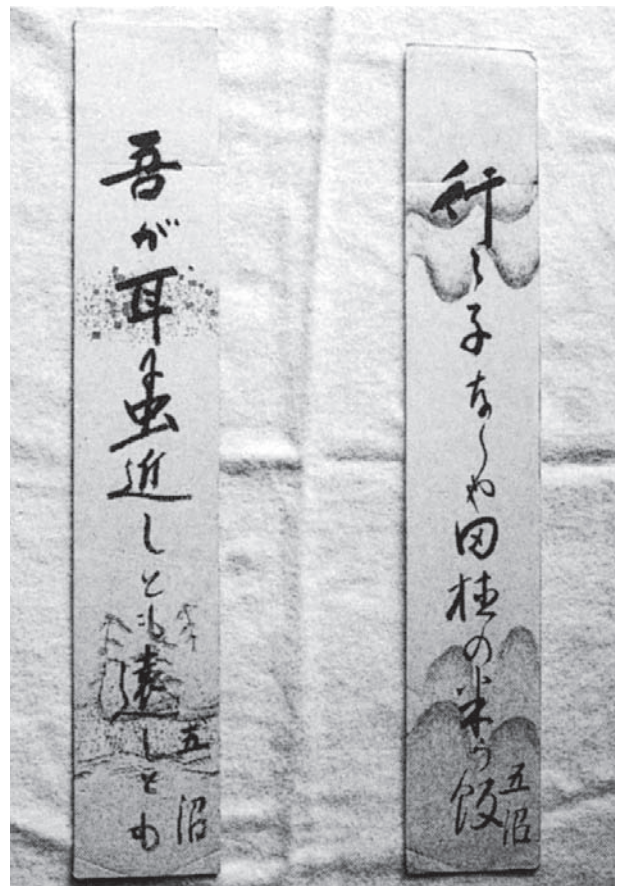 行〻子なくや田植の米の飯
五沼
吾が耳に虫近しとも遠しとも
五沼